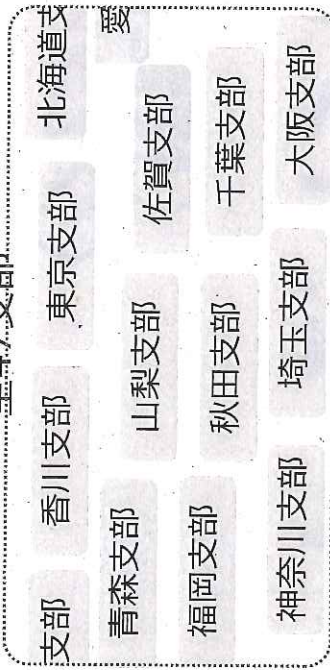 支部 香川支部 東京支部 北海道支
青森支部 山梨支部 佐賀支部 愛
福岡支部 秋田支部 千葉支部
神奈川支部 埼玉支部 大阪支部